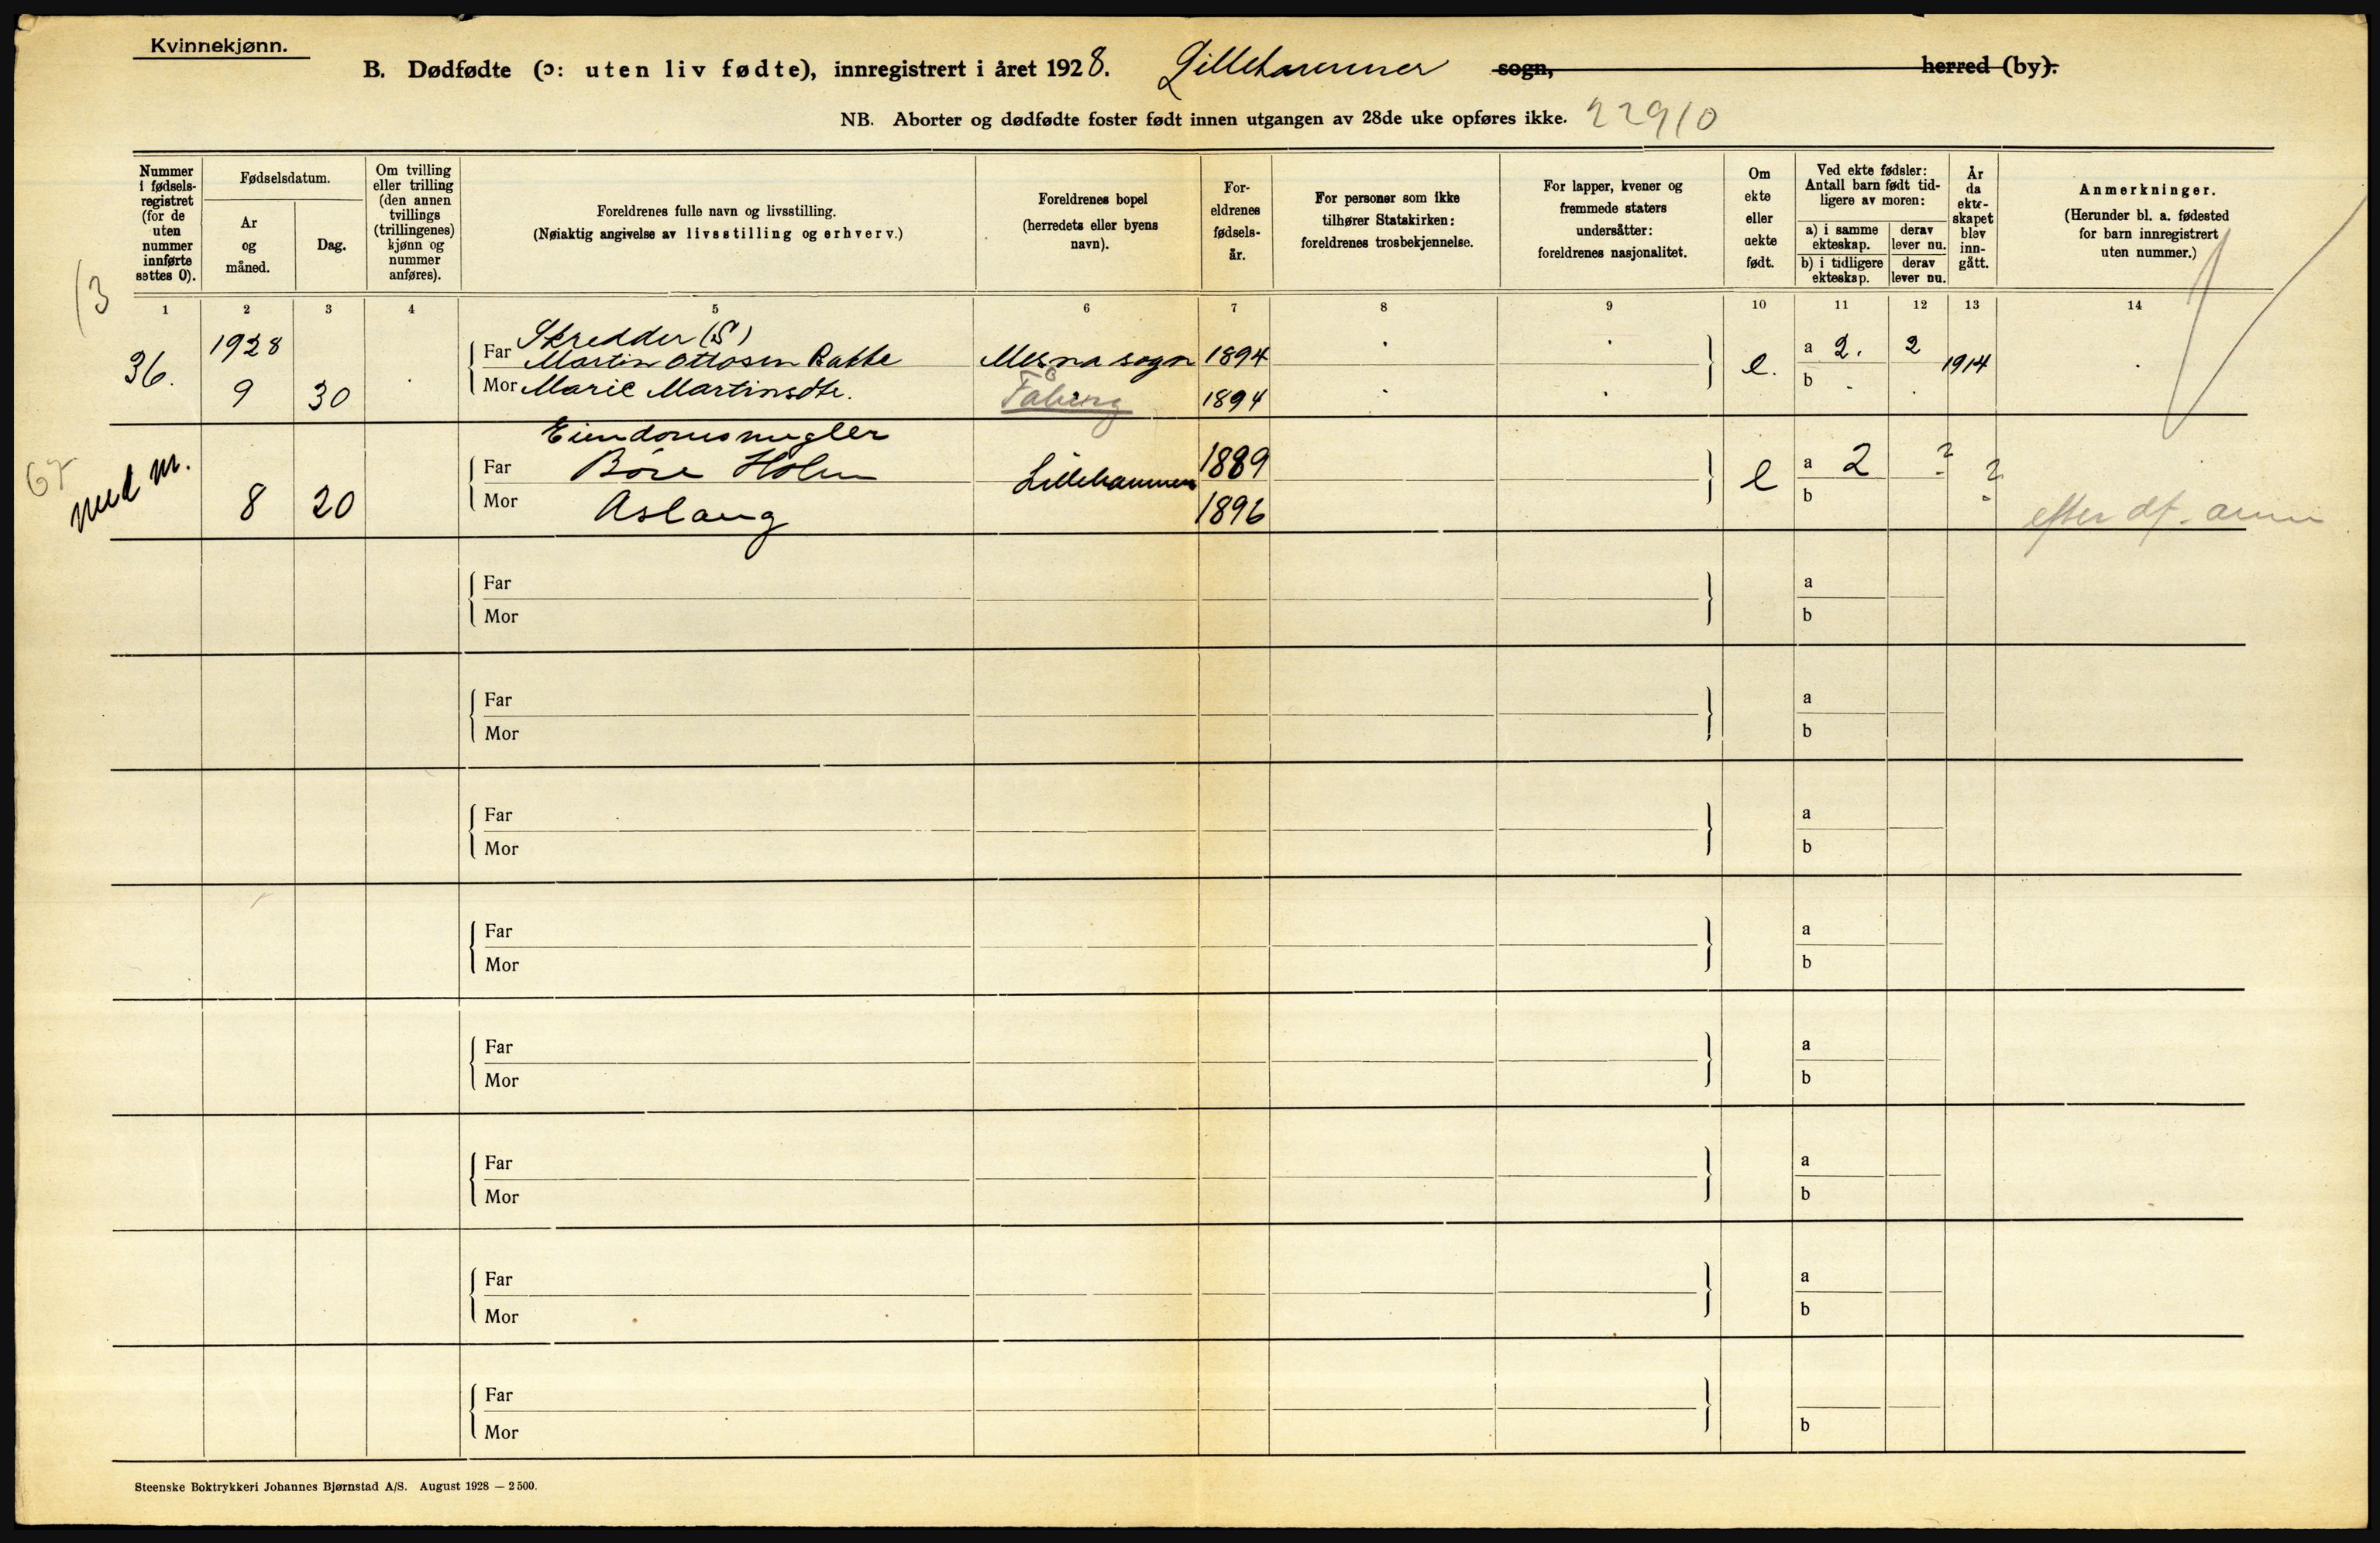 Kvinnekjønn.
B. Dødfødte (ɔ: uten liv fødte), innregistrert i året 1928. Lillehammer sogn, herred (by).
NB. Aborter og dødfødte foster født innen utgangen av 28de uke opføres ikke. 22910
Nummer i fødsels- registret (for de uten nummer innførte settes 0).
Fødselsdatum.
År og måned.
Dag.
Om tvilling eller trilling (den annen tvillings (trillingenes) kjønn og nummer anføres).
Foreldrenes fulle navn og livsstilling.
(Nøiaktig angivelse av livsstilling og erhverv.)
Foreldrenes bopel (herredets eller byens navn).
For- eldrenes fødsels- år.
For personer som ikke tilhører Statskirken: foreldrenes trosbekjennelse.
For lapper, kvener og fremmede staters undersåtter: foreldrenes nasjonalitet.
Om ekte eller uekte født.
Ved ekte fødsler: Antall barn født tid- ligere av moren:
a) i samme ekteskap.
derav lever nu.
b) i tidligere ekteskap.
derav lever nu.
År da ekte- skapet blev inn- gått.
Anmerkninger.
(Herunder bl. a. fødested for barn innregistrert uten nummer.)
1 2 3 4 5 6 7 8 9 10 11 12 13 14
13
1928
Skredder (S)
36. Far Martin Ottosen Bakke Mesna sogn 1894 e. a 2. 2 1914
9 30 Mor Marie Martinsdtr. Fåberg 1894 b
Eiendomsmegler
med nr. Far Børe Holm Lillehammer 1889 e a 2 ? ?
8 20 Mor Aslaug 1896 b
efter df.
Far a
Mor b
Far a
Mor b
Far a
Mor b
Far a
Mor b
Far a
Mor b
Far a
Mor b
Far a
Mor b
Far
Mor b
Steenske Boktrykkeri Johannes Bjørnstad A/S. August 1928 — 2500.